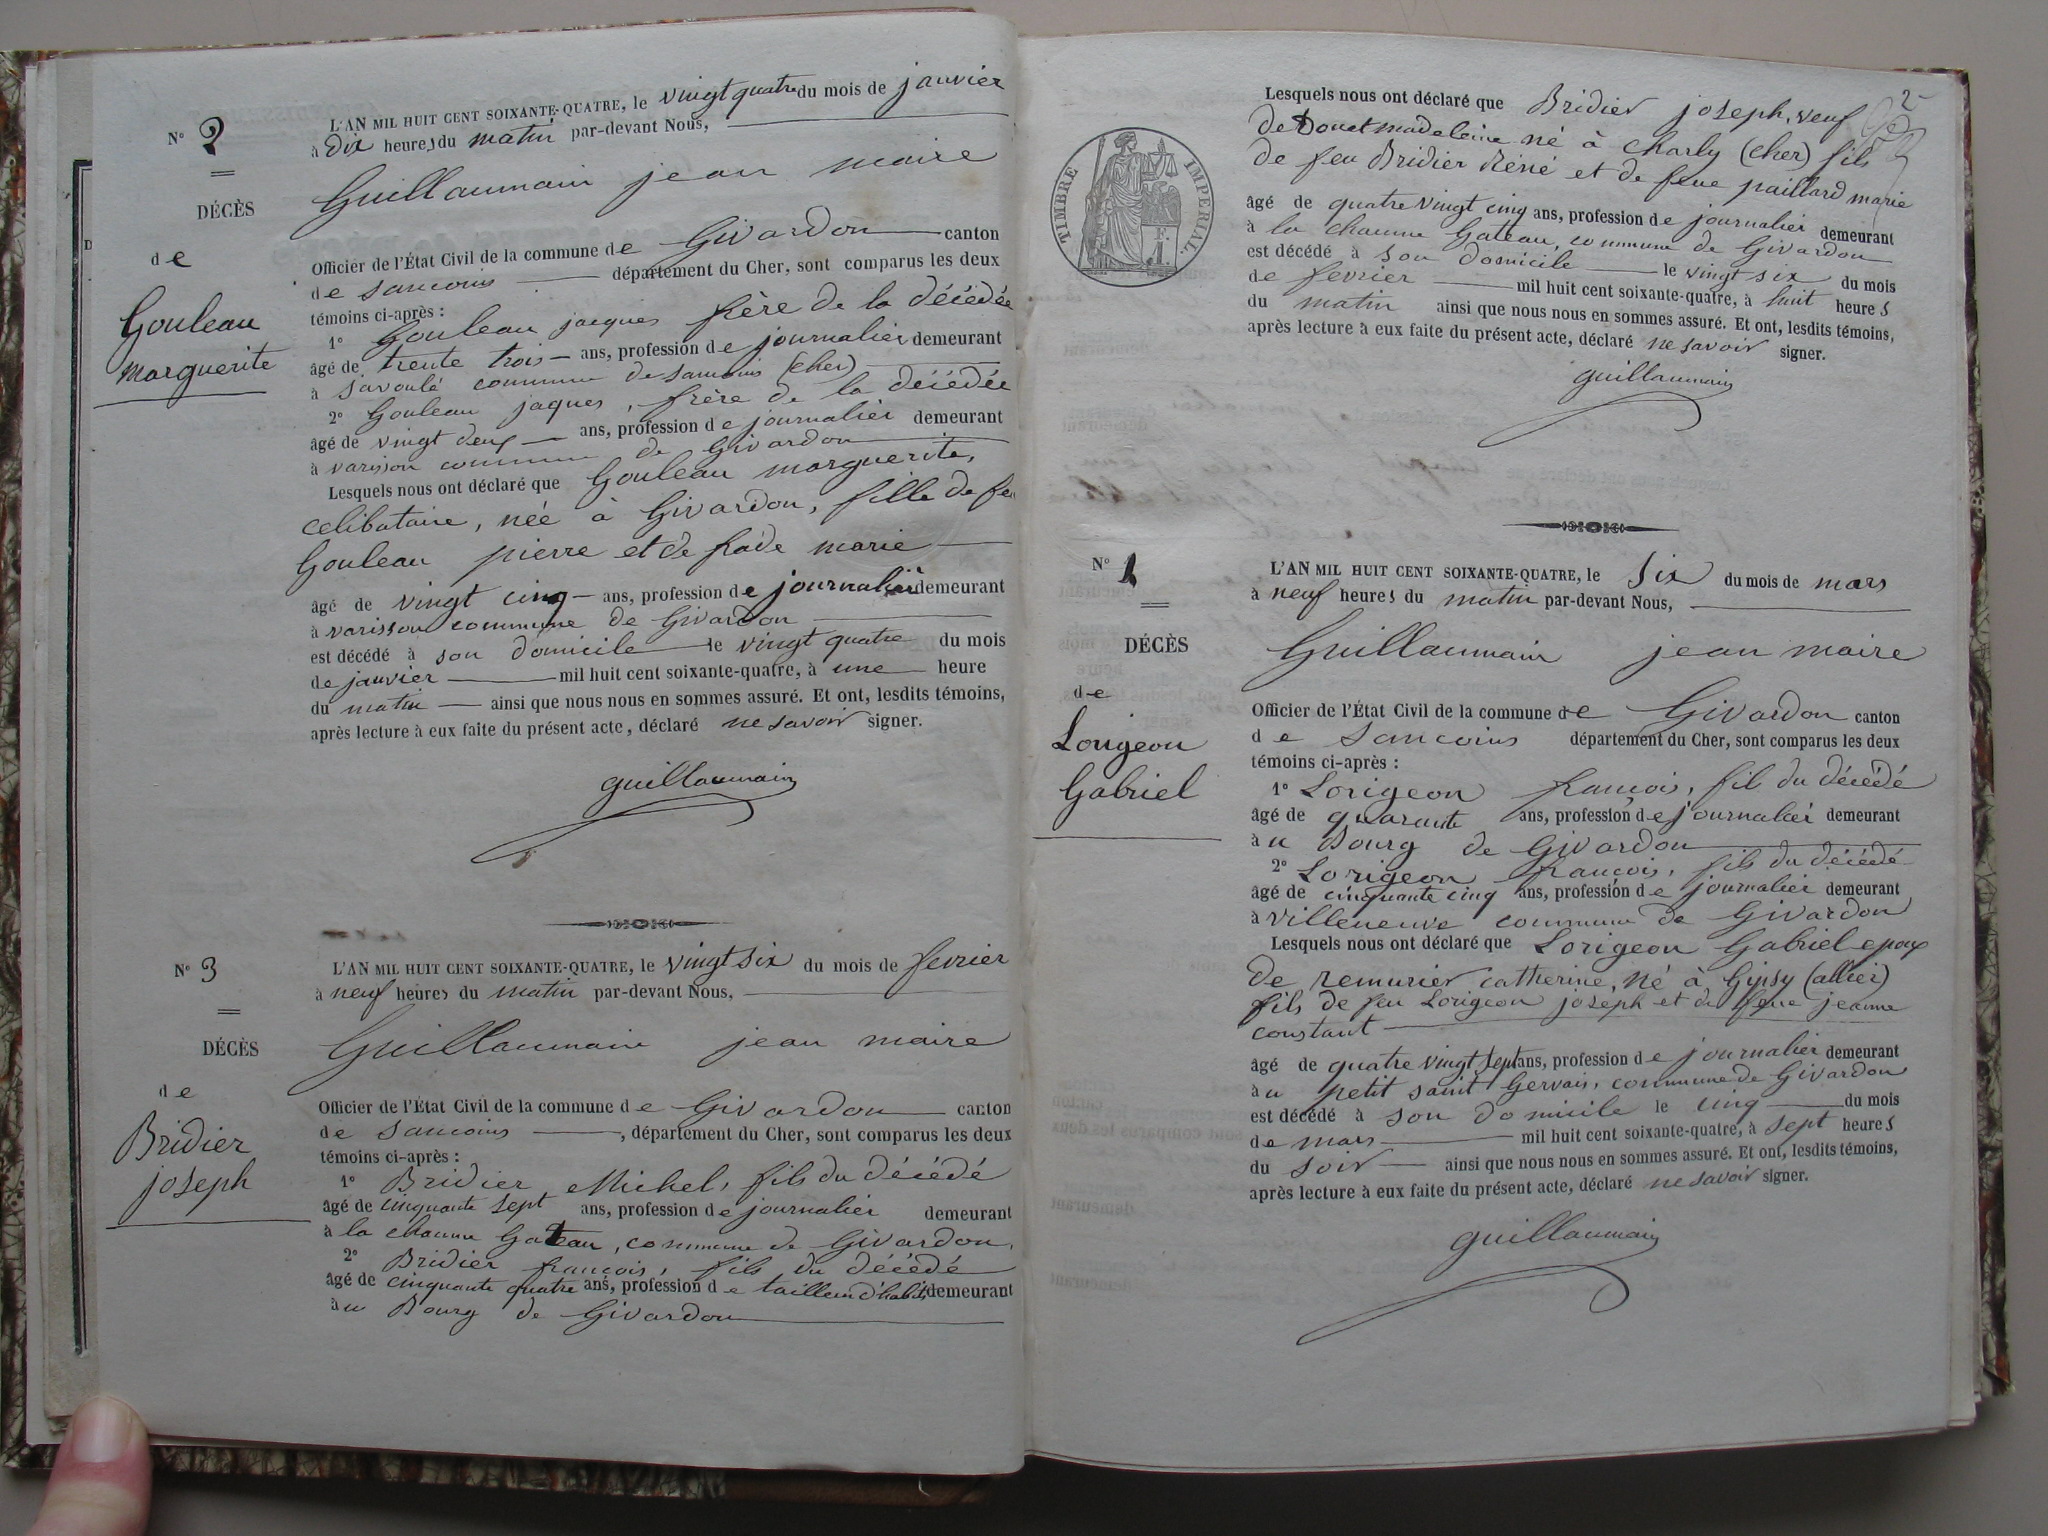 N° 2
DÉCÈS
de
Gouleau
marguerite
L'AN MIL HUIT CENT SOIXANTE-QUATRE, le vingt quatre du mois de janvier
à dix heures du matin par-devant Nous,
Guillaumain jean maire
Officier de l'État Civil de la commune de Givardon canton
de sancoins département du Cher, sont comparus les deux
témoins ci-après :
1° Gouleau jacques frère de la décédée
âgé de trente trois ans, profession de journalier demeurant
à commune de sancoins (cher)
2° Gouleau jaques, frère de la décédée
âgé de vingt deux ans, profession de journalier demeurant
à varisson commune de Givardon
Lesquels nous ont déclaré que Gouleau marguerite,
celibataire, née à Givardon, fille de feu
Gouleau pierre et de frade marie
âgé de vingt cinq ans, profession de journalier demeurant
à varisson commune de Givardon
est décédé à son domicile le vingt quatre du mois
de janvier mil huit cent soixante-quatre, à une heure
du matin ainsi que nous nous en sommes assuré. Et ont, lesdits témoins,
après lecture à eux faite du présent acte, déclaré ne savoir signer.
guillaumain
N° 3
DÉCÈS
de
Bridier
joseph
L'AN MIL HUIT CENT SOIXANTE-QUATRE, le vingt six du mois de fevrier
à neuf heures du matin par-devant Nous,
Guillaumain jean maire
Officier de l'État Civil de la commune de Givardon canton
de sancoins, département du Cher, sont comparus les deux
témoins ci-après :
1° Bridier Michel, fils du décédé
âgé de cinquante sept ans, profession de journalier demeurant
à la chaume Gateau, commune de Givardon,
2° Bridier françois, fils du décédé
âgé de cinquante quatre ans, profession de tailleur d'habits demeurant
au Bourg de Givardon
2
TIMBRE IMPERIAL.
Lesquels nous ont déclaré que Bridier joseph, veuf
de Douet madeleine né à charly (cher) fils
de feu Bridier Réné et de feue paillard marie
âgé de quatre vingt cinq ans, profession de journalier demeurant
à la chaume Gateau, commune de Givardon
est décédé à son domicile le vingt six du mois
de fevrier mil huit cent soixante-quatre, à huit heures
du matin ainsi que nous nous en sommes assuré. Et ont, lesdits témoins,
après lecture à eux faite du présent acte, déclaré ne savoir signer.
guillaumain
N°
DÉCÈS
de
Lorigeon
Gabriel
L'AN MIL HUIT CENT SOIXANTE-QUATRE, le six du mois de mars
à neuf heures du matin par-devant Nous,
Guillaumain jean maire
Officier de l'État Civil de la commune de Givardon canton
de sancoins département du Cher, sont comparus les deux
témoins ci-après :
1° Lorigeon françois, fils du décédé
âgé de quarante ans, profession de journalier demeurant
au Bourg de Givardon
2° Lorigeon françois, fils du décédé
âgé de cinquante cinq ans, profession de journalier demeurant
à villeneuve commune de Givardon
Lesquels nous ont déclaré que Lorigeon Gabriel epoux
de remurier catherine, né à Gipsy (allier)
fils de feu Lorigeon joseph et de feue jeanne
constant
âgé de quatre vingt sept ans, profession de journalier demeurant
au petit saint Gervais, commune de Givardon
est décédé à son domicile le cinq du mois
de mars mil huit cent soixante-quatre, à sept heures
du soir ainsi que nous nous en sommes assuré. Et ont, lesdits témoins,
après lecture à eux faite du présent acte, déclaré ne savoir signer.
guillaumain